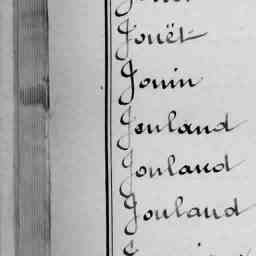 Jouët
Jouin
Jouland
Joulaud
Jouland